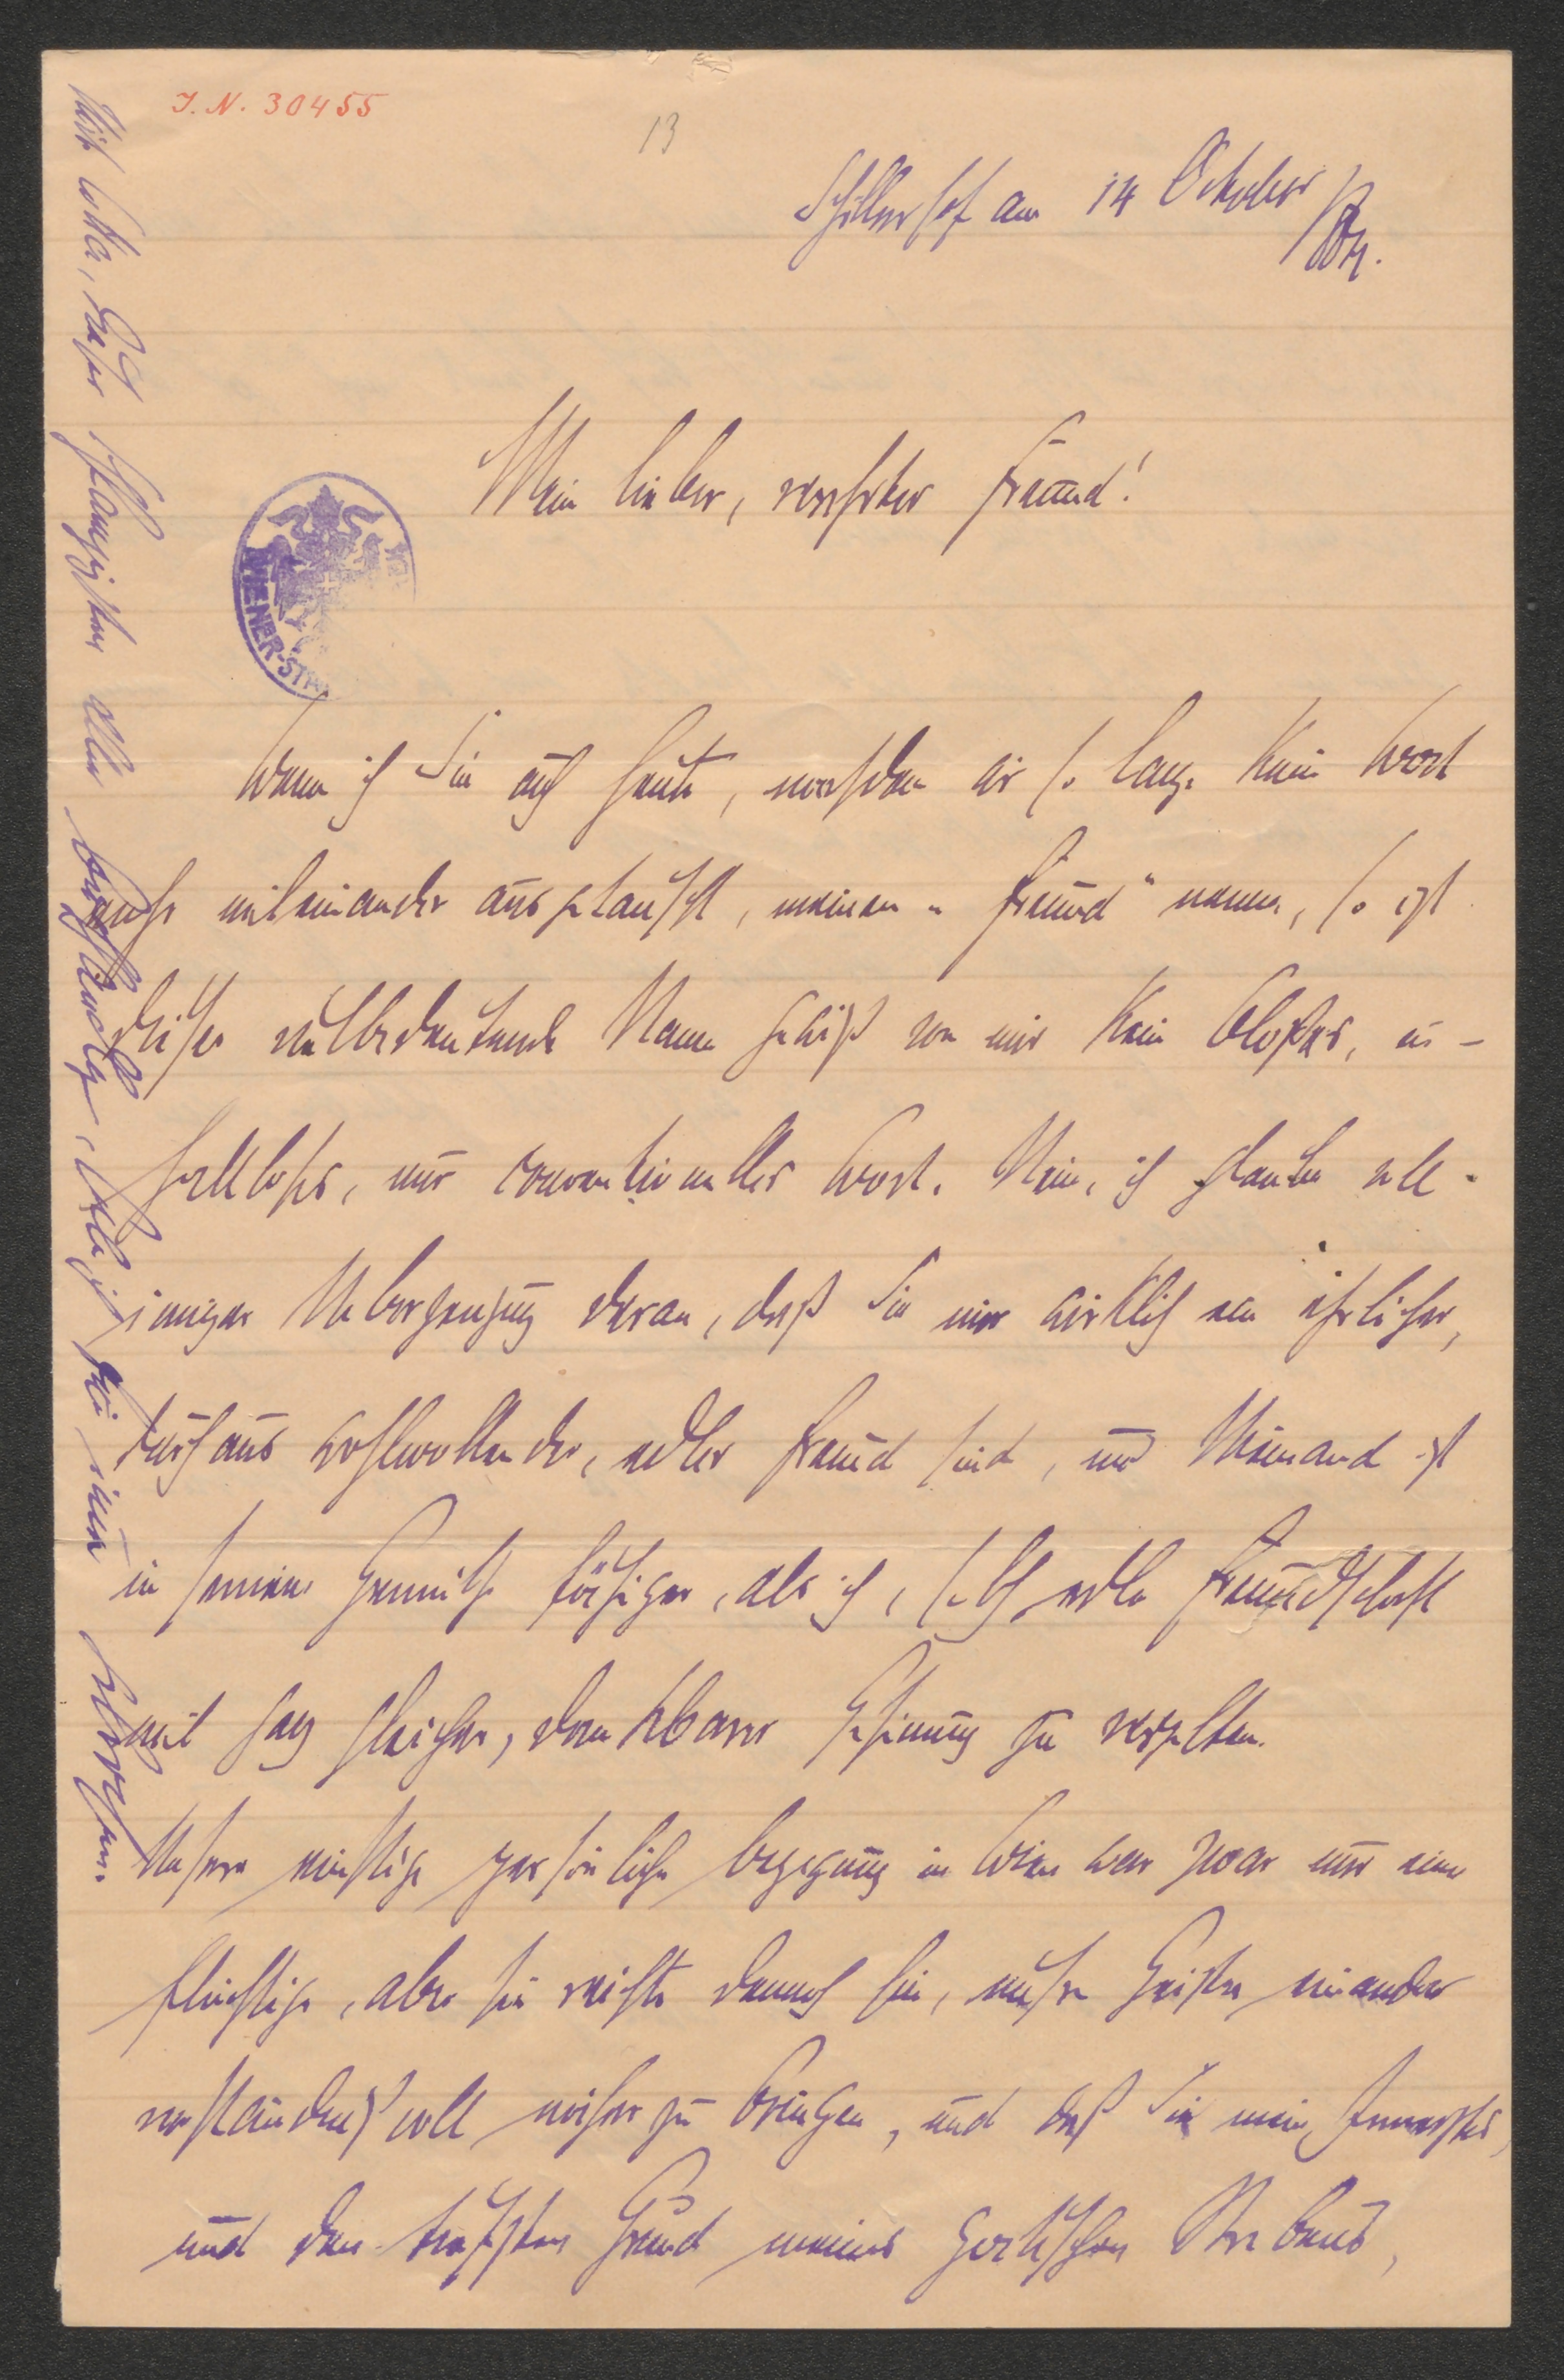 J. N. 30455
13
Schillerhof am 14 October
Mein lieber, verehrter Freund!
WIENER-STA
Wenn ich Sie auch heute, nachdem wir so lange kein Wort
mehr miteinander ausgetauscht, meinen „Freund" nenne, so ist
dieser vielbedeutende Name gewiß von mir kein bloßes, in-
haltloses, nur conventionelles Wort. Nein, ich glaube voll
inniger Ueberzeugung daran, daß Sie mir wirklich ein ehrlicher,
durchaus wohlwollender, edler Freund sind, und Niemand ist
in seinem Gemüthe fähiger, als ich, solch edle Freundschaft
mit ganz gleicher, dankbarer Gesinnung zu vergelten.
Unsere einstige persönliche Begegnung in Wien war zwar nur eine
flüchtige, aber sie reichte dennoch hin, unsere Geister einander
verständnißvoll näher zu bringen, und daß Sie mein Innerstes,
und den tiefsten Grund meines poetischen Strebens,